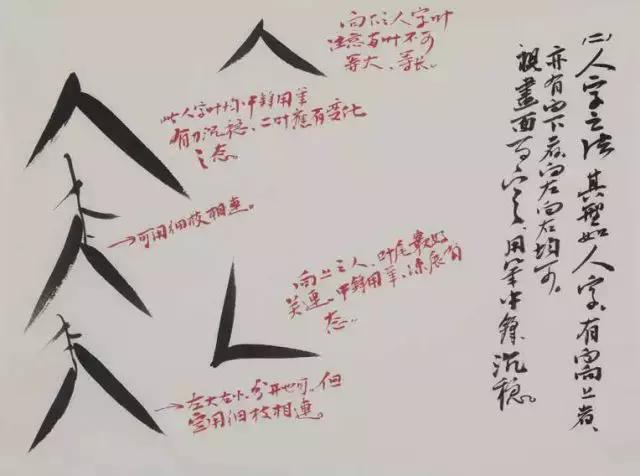 (二)人字之法 其型如人字,有向上者、
亦有向下者,向左向右均可。
视画面而定、用笔中锋沉稳。
向下之人字叶
注意每叶不可
等大、等长。
此人字叶均中锋用笔
有力沉稳、二叶应有变化
之态。
→可用细枝相连。
向上之人、叶尾最好
关连.中锋用笔、有
态..
→左大右小、分开也可、但
宜用细枝相连。